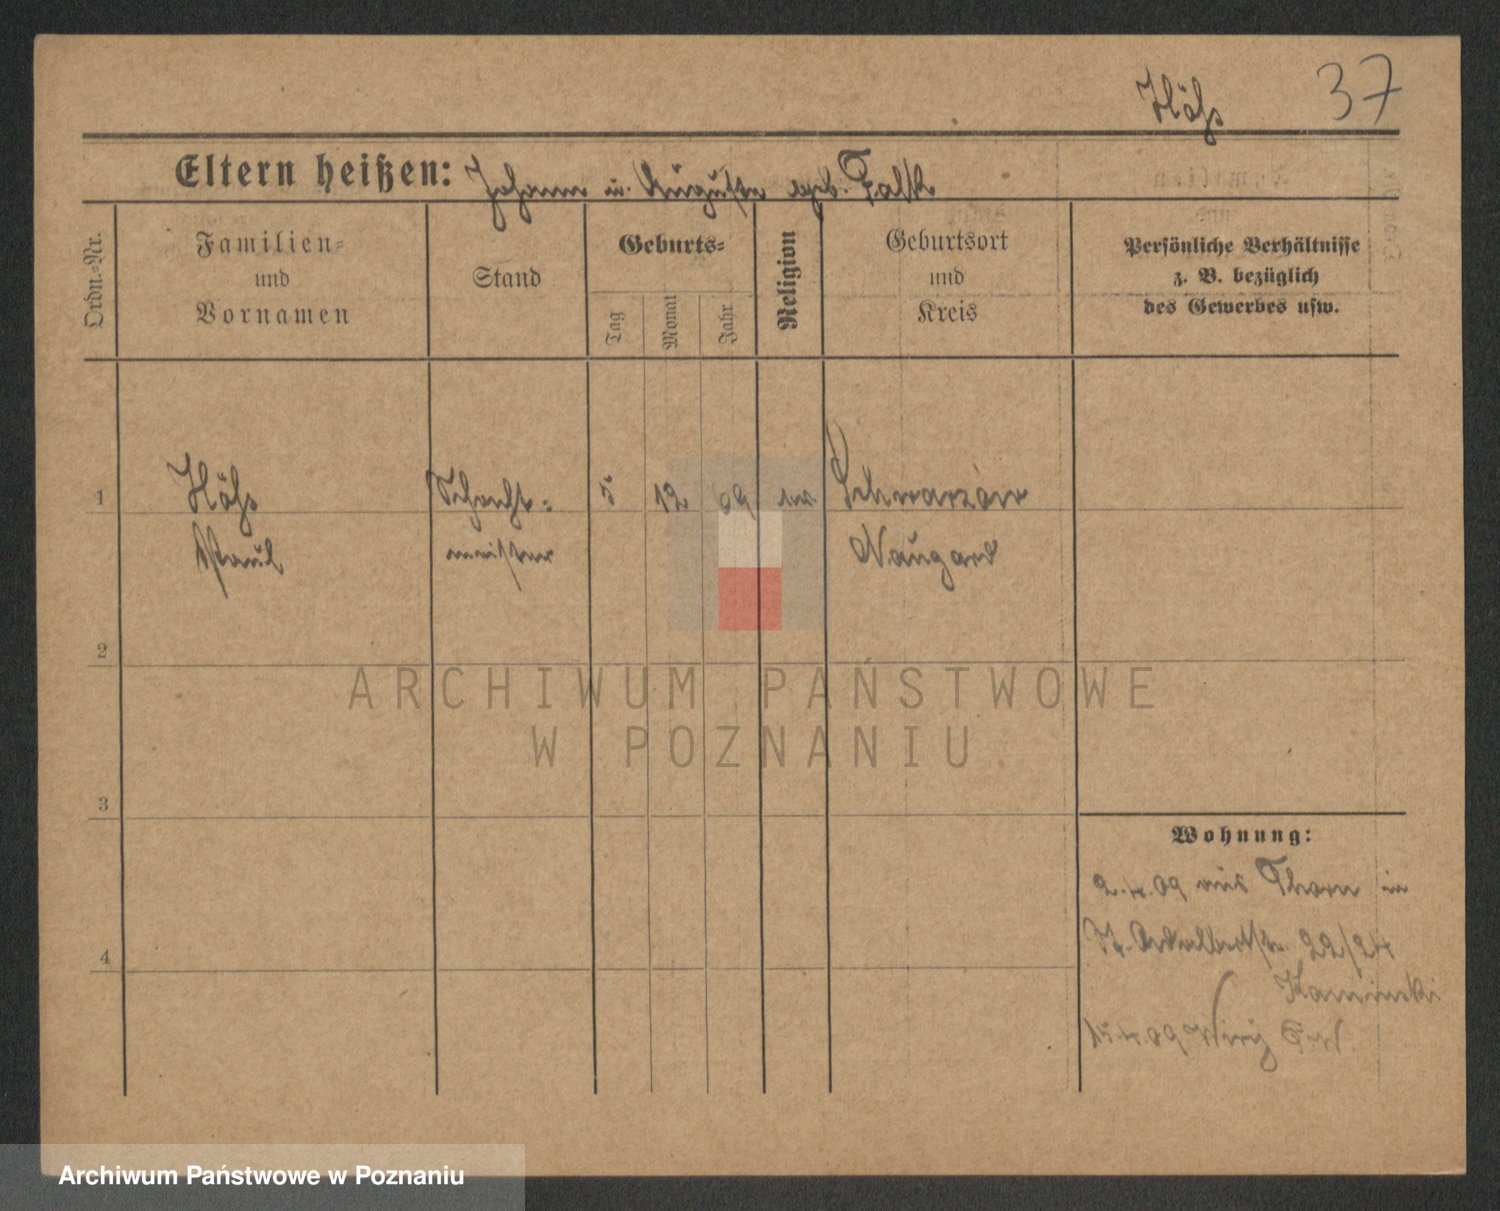 37
Eltern heißen: Johann u. Auguste geb. Falk
Ordn.-Nr.
Familien-
und
Vornamen
Stand
Geburts-
Tag
Monat
Jahr
Religion
Geburtsort
und
Kreis
Persönliche Verhältnisse
z. B. bezüglich
des Gewerbes usw.
1
Schacht-
5
12
69
ev
Schwarzow
Paul
meister
Naugard
2
3
4
Wohnung:
2.4.09 aus Thorn in
St. Adalbertstr. 22/24
Kaminski
15.4.09
ARCHIWUM PAŃSTWOWE
W POZNANIU
Archiwum Państwowe w Poznaniu